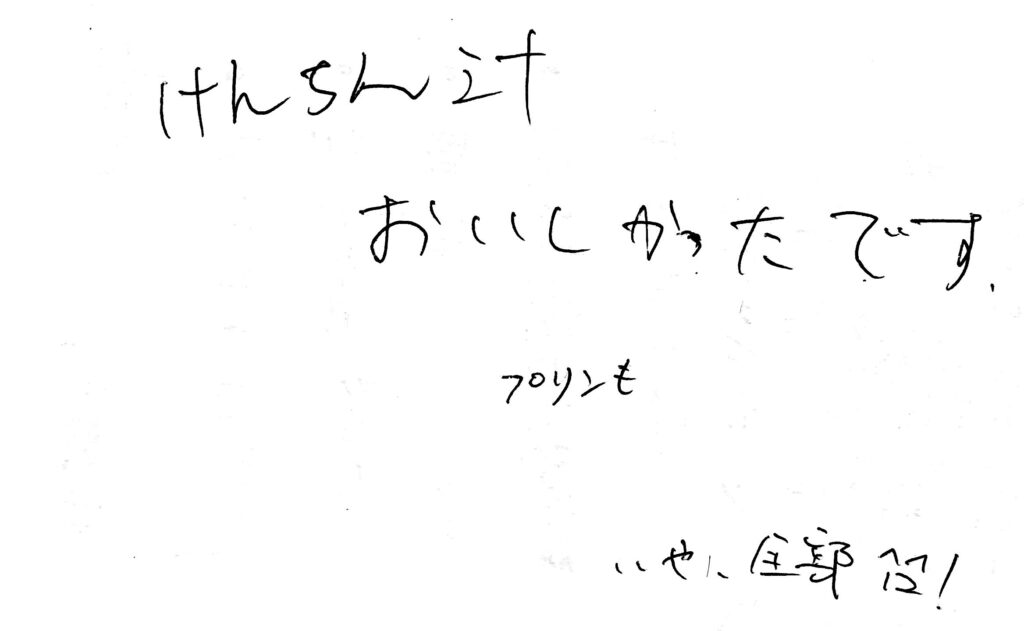 けんちん汁
おいしかったです.
プリンも
いや、全部